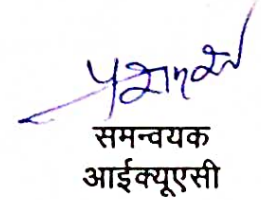 समन्वयक
आईक्यूएसी